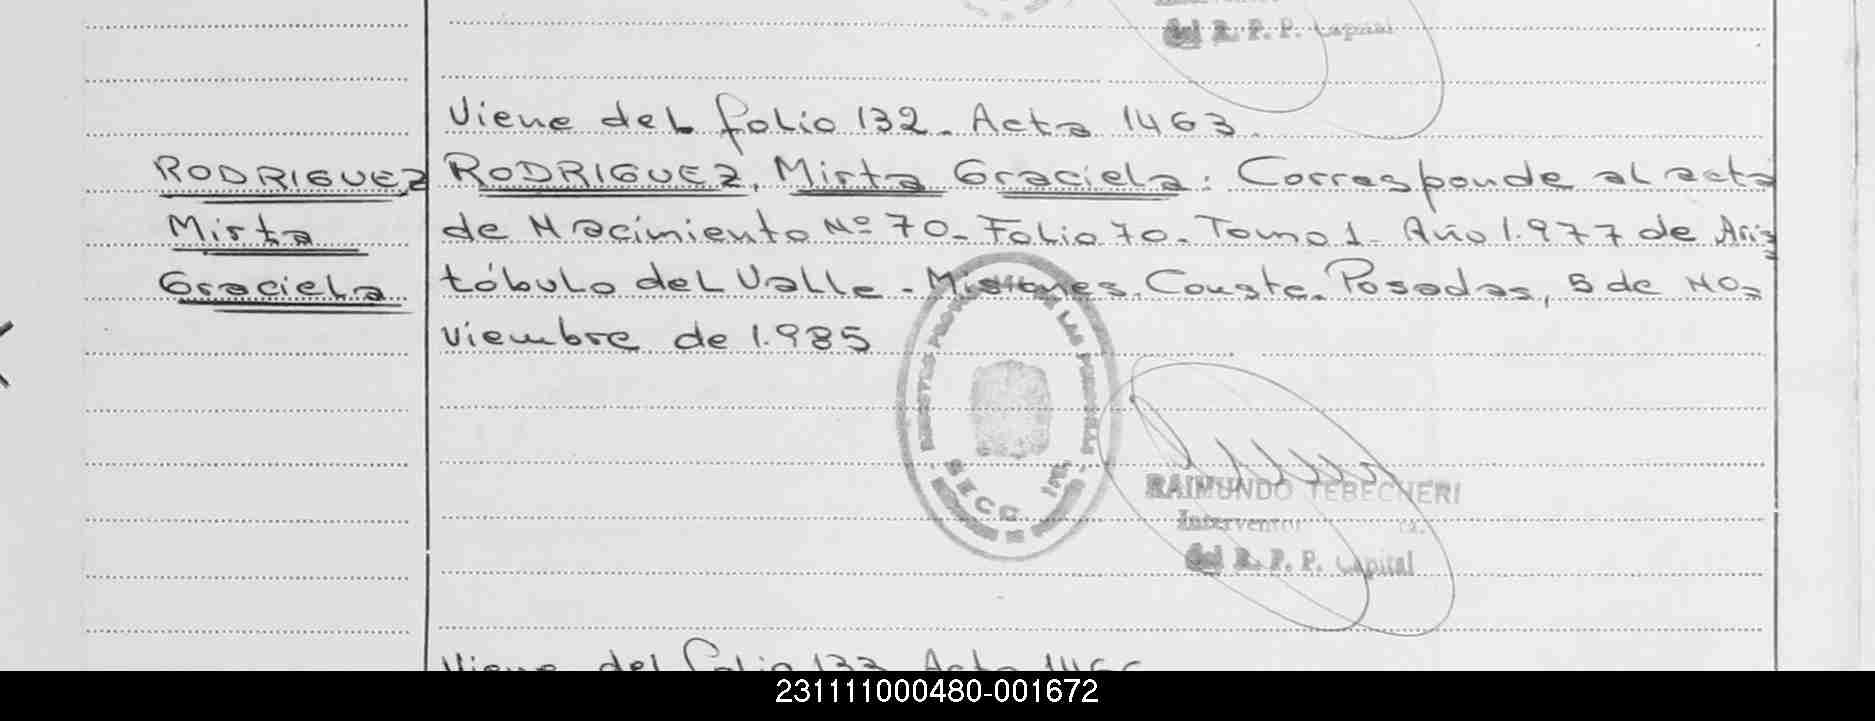 del R. P. P. Capital
Viene del folio 132. Acta 1463.
RODRIGUEZ
Mirta
Graciela
RODRIGUEZ, Mirta Graciela: Corresponde al acta
de Nacimiento Nº 70- Folio 70. Tomo 1- Año 1.977 de Aris
tóbulo del Valle - Misiones. Conste. Posadas, 5 de NO=
viembre de 1.985
REGISTRO PROV. DE LAS PERSONAS
SECC
RAIMUNDO TEBECHERI
Interventor
del R. P. P. Capital
Viene del folio 133 Acta
231111000480-001672